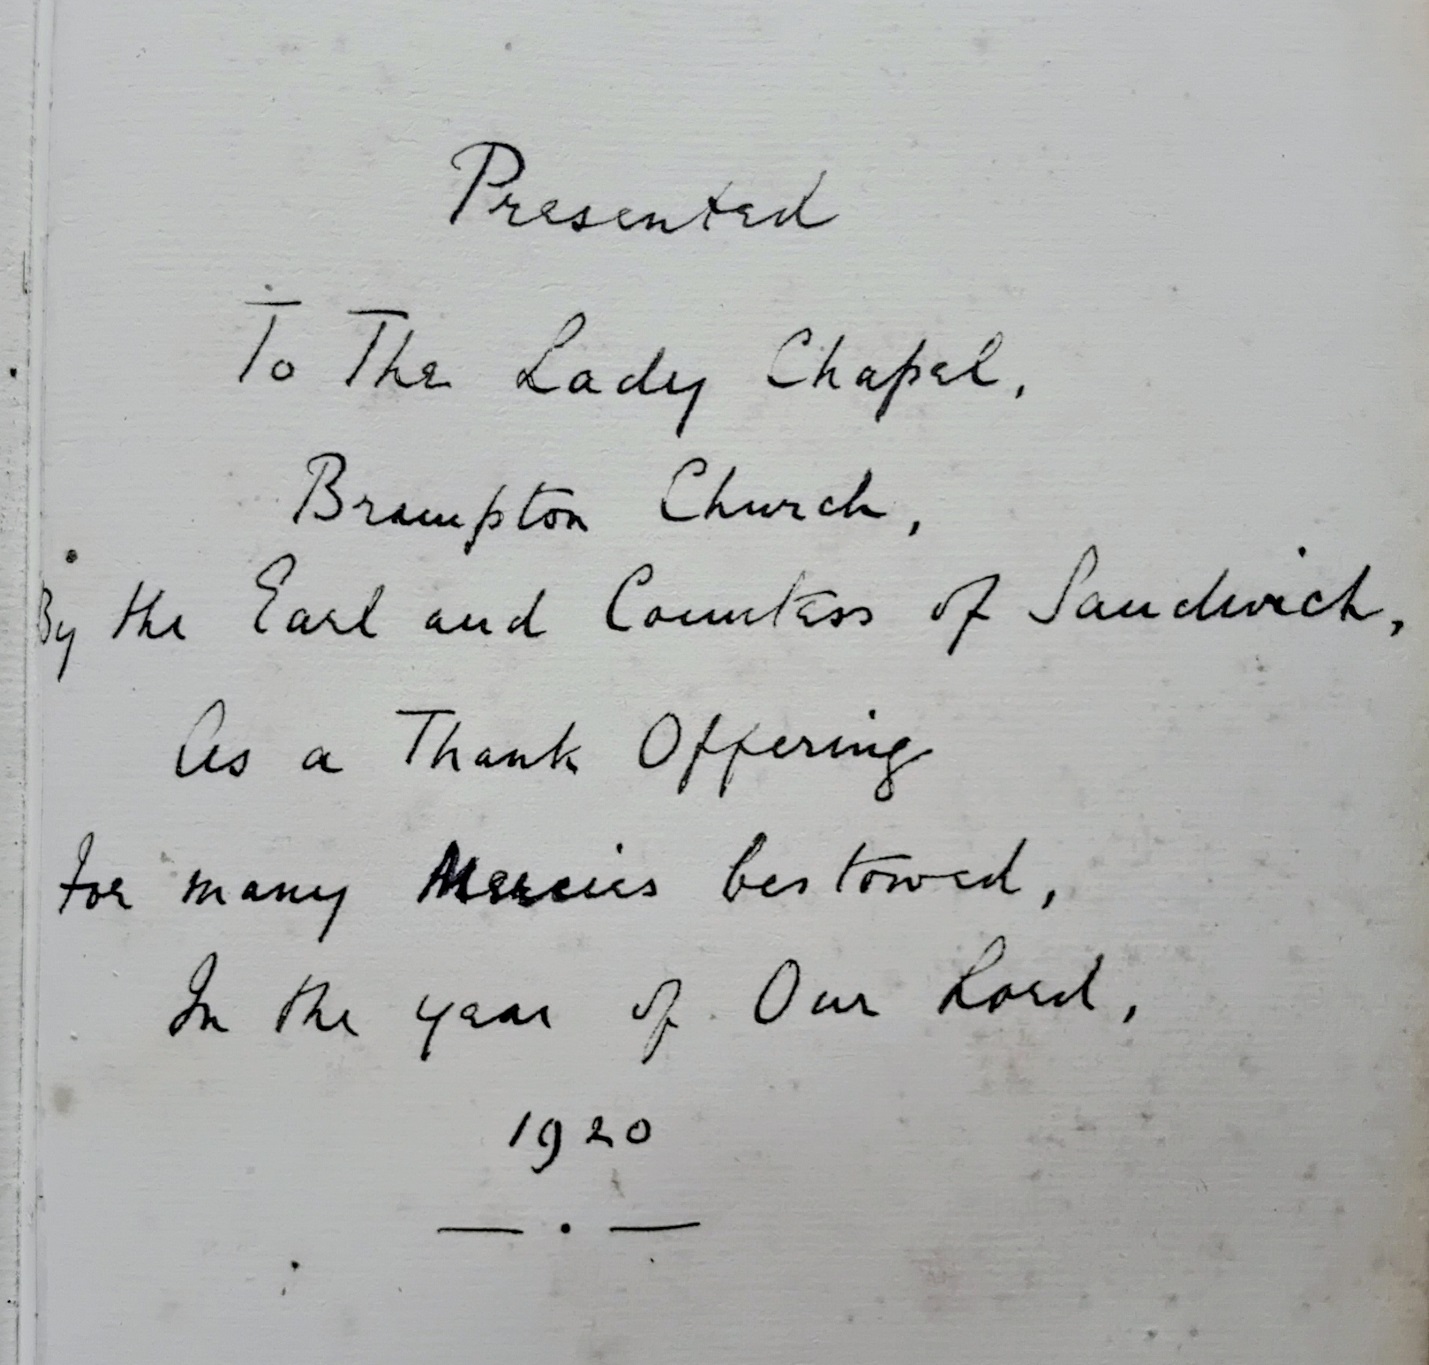 Presented
To The Lady Chapel,
Brampton Church,
By the Earl and Countess of Sandwich,
As a Thank Offering
for many Mercies bestowed,
In the year of Our Lord,
1920